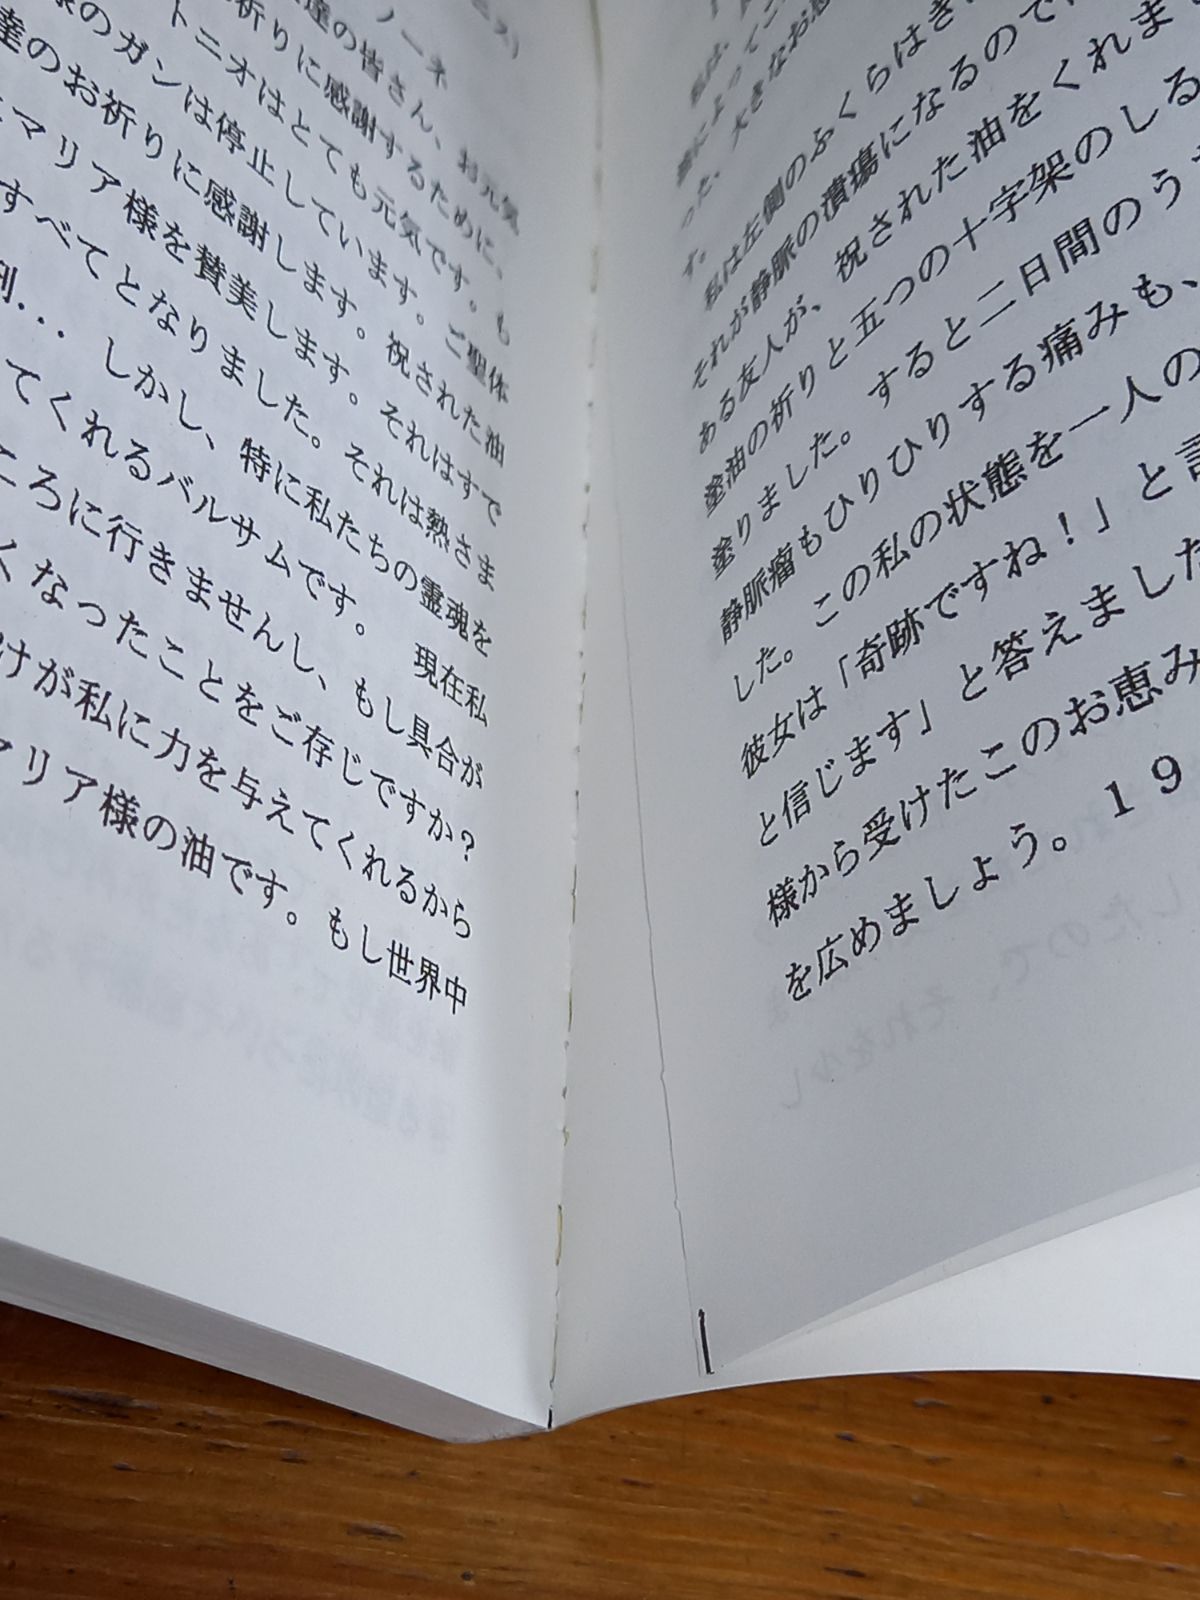 ノーネ
達の皆さん、お元気
祈りに感謝するために、
トニオはとても元気です。も
のガンは停止しています。ご聖体
達のお祈りに感謝します。祝された油
マリア様を賛美します。それはすで
すべてとなりました。それは熱さま
... しかし、特に私たちの霊魂を
てくれるバルサムです。 現在私
ころに行きませんし、もし具合が
くなったことをご存じですか?
けが私に力を与えてくれるから
マリア様の油です。もし世界中
った、大きなお恵
す。
私は左側のふくらはぎ
それが静脈の潰瘍になるので
ある友人が、祝された油をくれま
塗油の祈りと五つの十字架のしる
塗りました。すると二日間のう
静脈瘤もひりひりする痛みも、
した。この私の状態を一人の
彼女は「奇跡ですね!」と言
と信じます」と答えました
様から受けたこのお恵み
を広めましょう。19